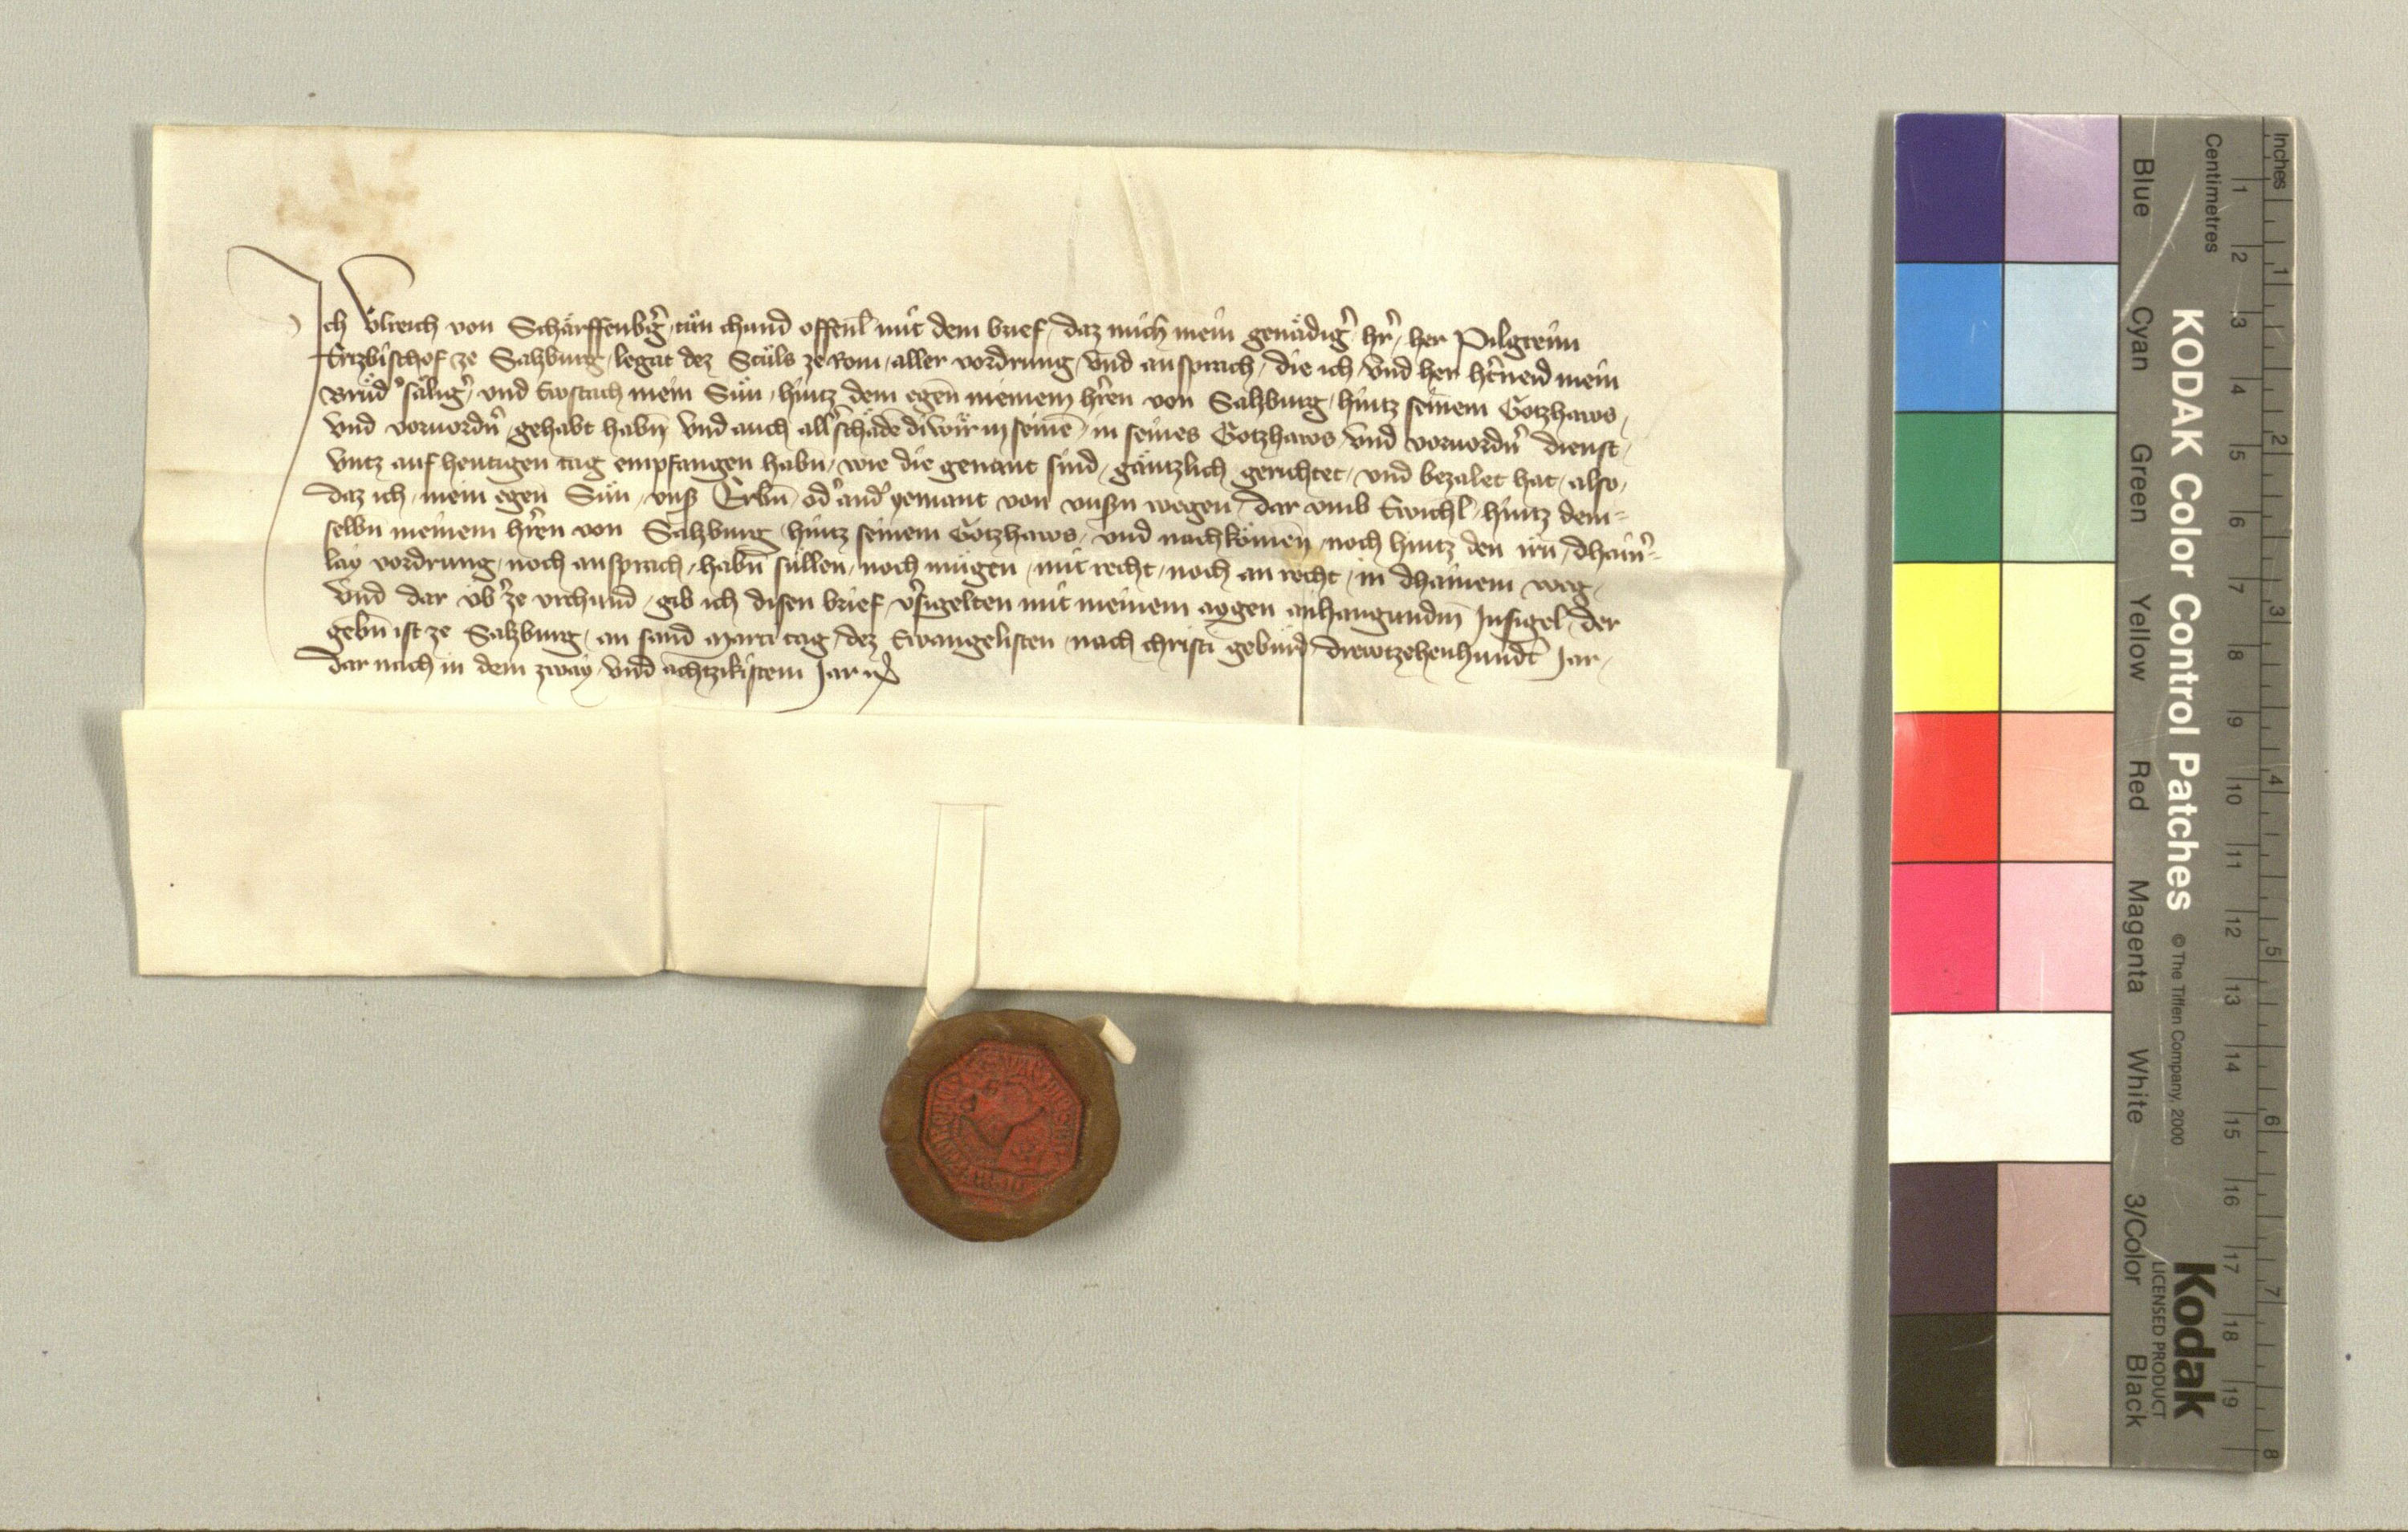 Ich Vͦlreich von Schaͤrffenbg̉ tuͤn chund offenl̄ mit dem brief, daz mich mein genaͤdig̉ hr̉, her Pilgreim
Ertzbischof ze Saltzburg, legat dez Stuͤls ze Rom, aller vordrung, vnd ansprach, die ich, vnd her hr̉neid mein
Bruͤd̉ saͤlig̉, vnd Ewstach mein Suͤn, hintz dem egen̄ meinem hr̉en von Saltzburg, hintz seinem Gotzhaws,
vnd voruordn̉, gehabt habn̄ vnd auch all̉ schaͤdē di wir in seinē, in seines Gotzhaws, vnd voruordn̉ dienst,
vntz auf hewtigen tag empfangen habn, wie die genant sind, gaͤntzlich gerichtet, vnd bezalet hat, also,
daz ich, mein egen̄ Suͤn, vnsr̉ Erbn̄, od̉ and̉ yemant von vnsn̉ wegen, dar vmb Ewichl̄, hintz dem=
selbn meinem hr̉en von Saltzburg, hintz seinem Gotzhaws, vnd nachkoͤmen̄, noch hintz den irn̄, dhain̉=
lay vordrung, noch ansprach, habn̄ suͤllen, noch muͤgen, mit recht, noch an recht, in dhainem weg,
Vnd dar vͤb̉ ze vrchund, gib ich disen brief, v̉sigelten mit meinem aygen anhangundm̄ Insigel, der
gebn̄ ist ze Saltzburg, an sand Marci tag, dez Ewangelisten, nach christi gebuͤrd drewtzehenhund̉t Jar,
dar nach in dem zway, vnd achtzikistem Jar
KODAK Color Control Patches
© The Tiffen Company, 2000
Kodak
LICENSED PRODUCT
Blue Cyan Green Yellow Red Magenta White 3/Color Black
Inches 1 2 3 4 5 6 7 8
Centimetres 1 2 3 4 5 6 7 8 9 10 11 12 13 14 15 16 17 18 19